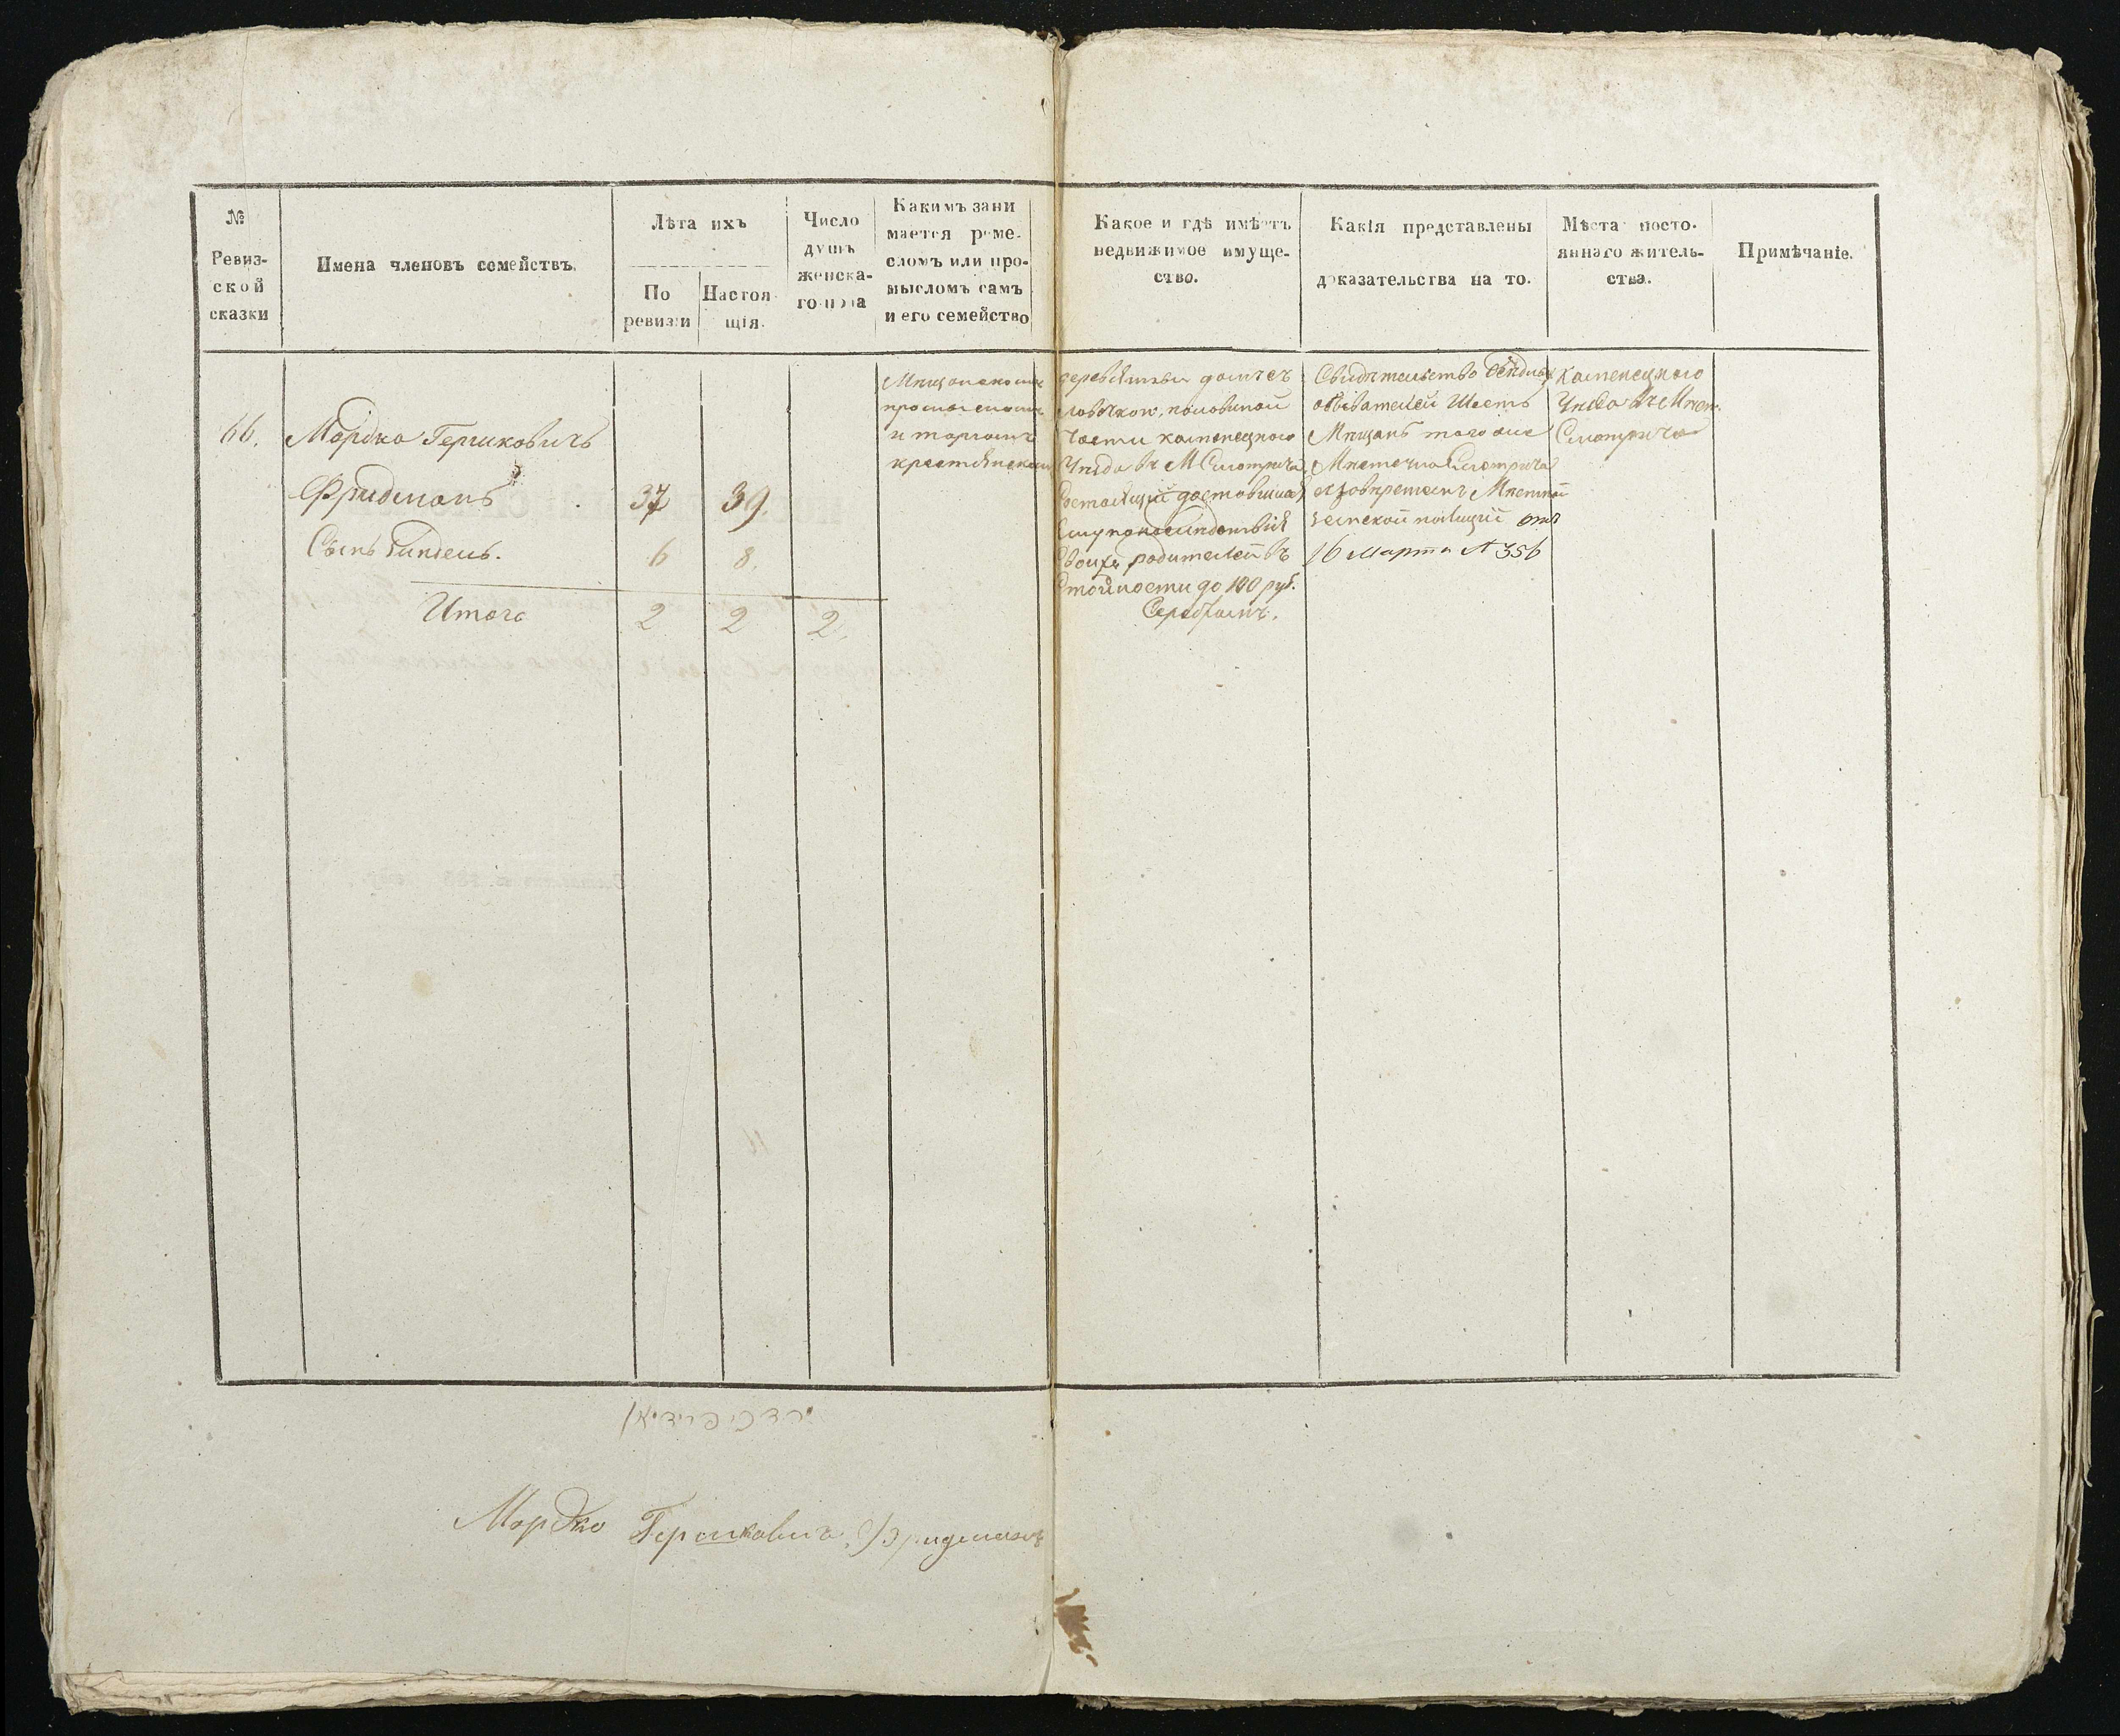 № Ревизской сказки
Имена членовъ семействъ.
Лѣта ихъ
По ревизіи
Настоящія.
Число душъ женскаго пола
Какимъ занимается ремесломъ или промысломъ самъ и его семейство
Какое и гдѣ имѣетъ недвижимое имущество.
Какія представлены доказательства на то.
Мѣста постояннаго жительства.
Примѣчаніе.
66.
Мордко Гершковичъ
Фридманъ
37
39.
Сынъ
6
8.
Итого
2
2
2.
Мѣщанскимъ
промысломъ
и торгомъ
крестьянскимъ
половиной
части каменецкаго
Уѣзда въ М Смотричѣ
доставшійся
ему
своихъ родителей въ
стоимости до 100 руб.
Серебромъ.
Свидѣтельство
обывателей Шесть
Мѣщанъ того же
Мѣстечка Смотрича
полиціи отъ
16 Марта № 356
Каменецкаго
Уѣзда въ Мѣст.
Смотричѣ
Мордко Гершковичъ Фридманъ